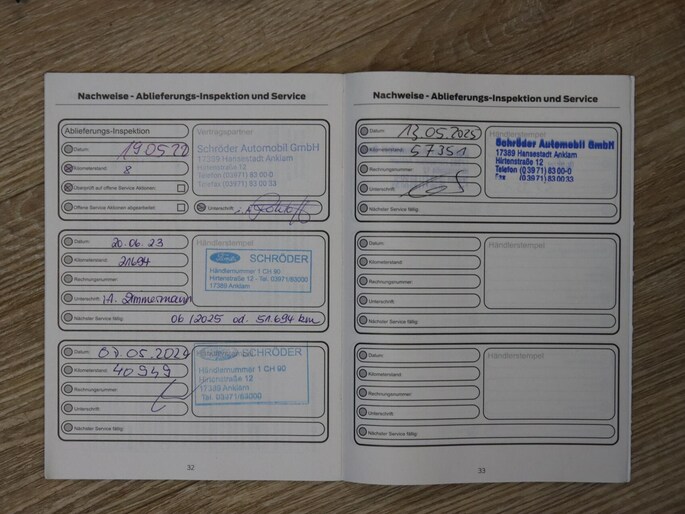 Nachweise - Ablieferungs-Inspektion und Service
Ablieferungs-Inspektion
Datum: 19.05.22
Kilometerstand: 8
Überprüft auf offene Service Aktionen
Offene Service Aktionen abgearbeitet
Vertragspartner
Schröder Automobil GmbH
17389 Hansestadt Anklam
Hirtenstraße 12
Telefon (03971) 83 00-0
Telefax (03971) 83 00 33
Unterschrift:
Datum: 20.06.23
Kilometerstand: 21694
Rechnungsnummer:
Unterschrift: i.A. Zimmermann
Nächster Service fällig: 06/2025 od. 51.694 km
Händlerstempel
Ford SCHRÖDER
Händlernummer 1 CH 90
Hirtenstraße 12 - Tel. 03971/83000
17389 Anklam
Datum: 07.05.2024
Kilometerstand: 40949
Rechnungsnummer:
Unterschrift:
Nächster Service fällig:
Händlerstempel
SCHRÖDER
Händlernummer 1 CH 90
Hirtenstraße 12
17389 Anklam
Tel. 03971/83000
32
Nachweise - Ablieferungs-Inspektion und Service
Datum: 13.05.2025
Kilometerstand: 57351
Rechnungsnummer:
Unterschrift:
Nächster Service fällig:
Händlerstempel
Schröder Automobil GmbH
17389 Hansestadt Anklam
Hirtenstraße 12
Telefon (03971) 83 00-0
Fax (03971) 83 00 33
Datum:
Kilometerstand:
Rechnungsnummer:
Unterschrift:
Nächster Service fällig:
Händlerstempel
Datum:
Kilometerstand:
Rechnungsnummer:
Unterschrift:
Nächster Service fällig:
Händlerstempel
33